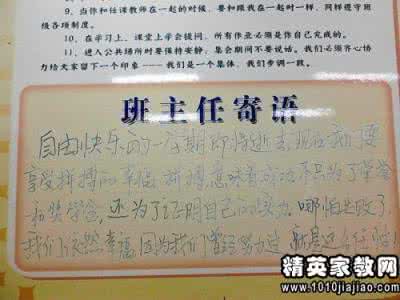 9、当你和任课教师在一起的时候，要和跟我在一起时一样，同样遵守班
级各项制度。
10、在学习上，课堂上学会提问，所有作业必须是你自己完成的。
11、进入公共场所时要保持安静；集会期间不要说话。我们必须齐心协
力给大家留下一个印象——我们是一个集体，我们步调一致。
班主任寄语
自由快乐的一星期即将逝去，现在我们要
享受拼搏的幸福，拼搏意味着成功，不只为了荣誉
和奖学金，还为了证明自己的实力。哪怕失败了
我们依然幸福，因为我们曾经努力过
精英家教网
www.1010jiajiao.com